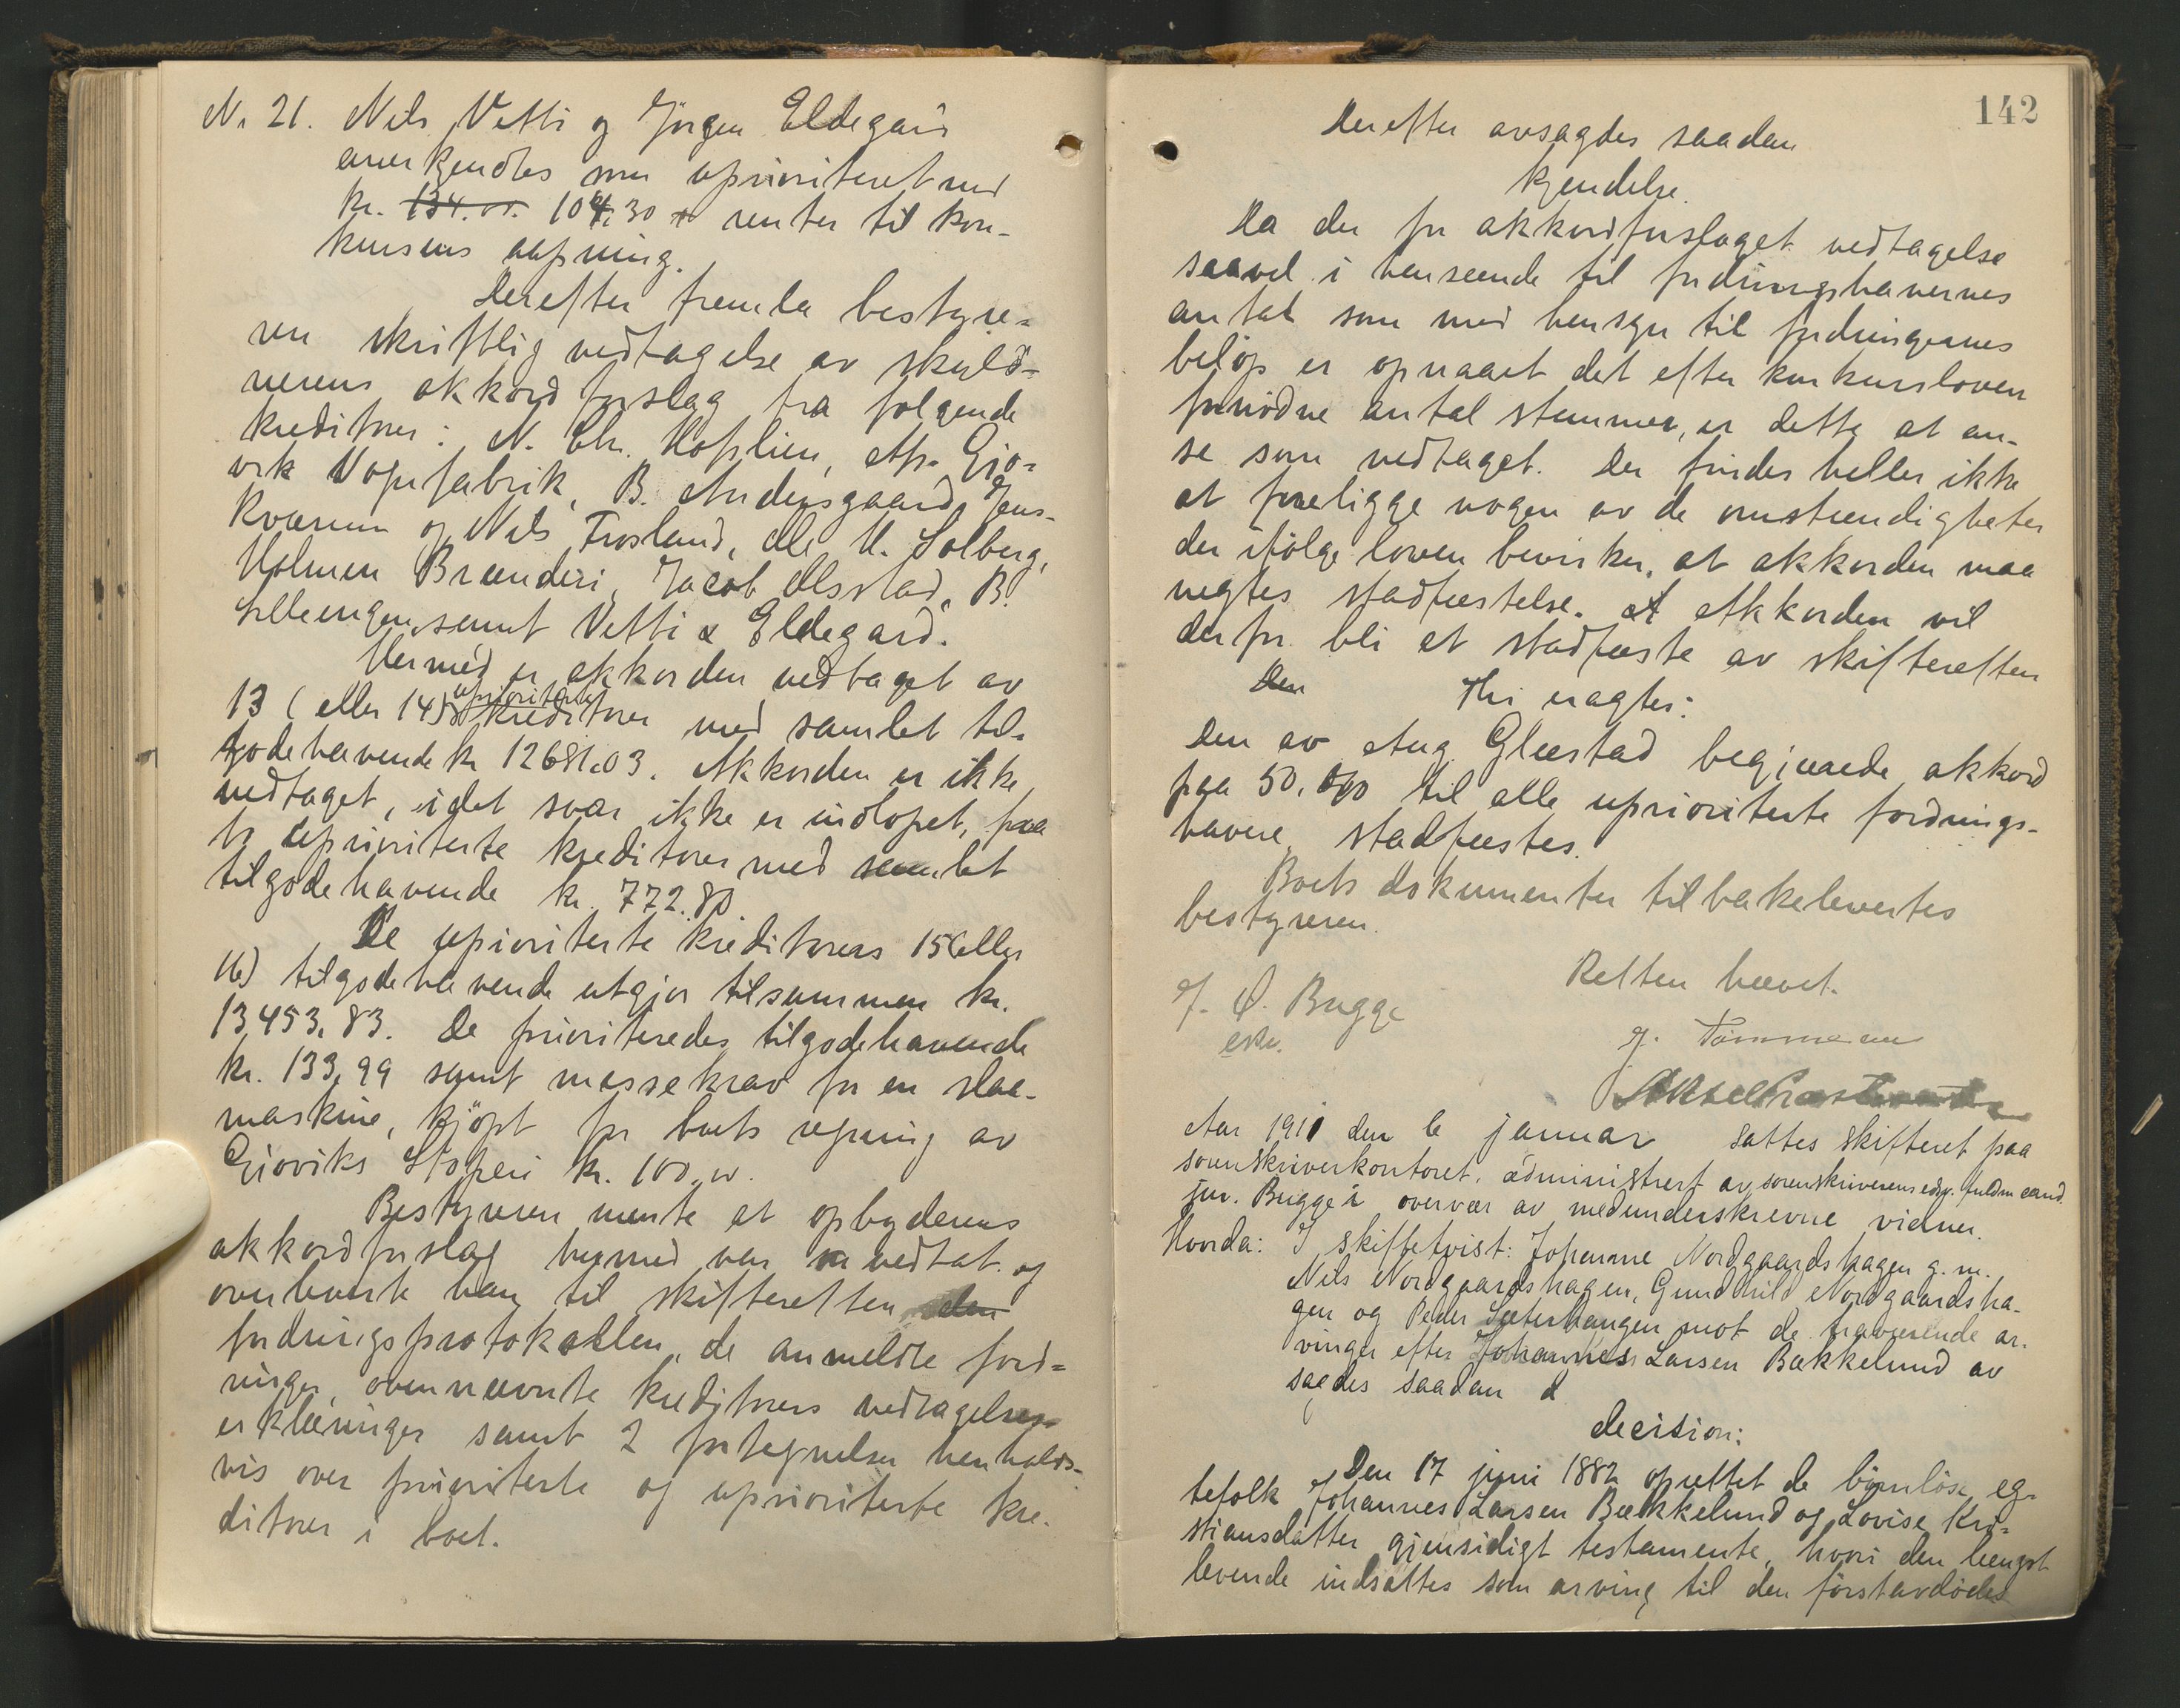 N. 21. Nils Vetti og Jörgen Eldegard
anerkjendtes som uprioritert med
kr. 134.00. 104,30 + renter til kon-
kursens aapning.
Derefter fremla bestyre-
ren skriftlig vedtagelse av skyld-
nerens akkordforslag fra følgende
kreditorer: N. Chr. Hoflien, A/s. Gjø-
vik Vognfabrik, B. Andersgaard, Jens
Kværum og Nils Frosland, M. Solberg,
Holmen Brænderi, Jacob Alstad, B.
Lilleengen samt Vetti & Eldegard.
Hermed er akkorden vedtaget av
uprioriterte
13 (eller 14) kreditorer med samlet til-
godehavende kr 12681.03. Akkorden er ikke
vedtaget, idet svar ikke er indløpet, fra
to uprioriterte kreditorer med samlet
tilgodehavende kr. 772.80
De uprioriterte kreditorers 15 (eller
16) tilgodehavende utgjør tilsammen kr.
13,453,83. De prioriteredes tilgodehavende
kr. 133,99 samt massekrav for en slaa-
maskine, kjöpt før boets aapning av
Gjøviks Støperi kr. 100.00.
Bestyreren mente at opbyderens
akkordforslag hermed var vedtat og
overleverte han til skifteretten den
fordringsprotokollen, de anmeldte ford-
ringer, ovennævnte kreditorers vedtagelses-
erklæringer samt 2 fortegnelser henholds-
vis over prioriterte og uprioriterte kre-
ditorer i boet.
142
Derefter avsagdes saadan
kjendelse.
Da der for akkordforslaget vedtagelse
saavel i henseende til fordringshavernes
antal som med hensyn til fordringernes
beløp er opnaaet det efter konkursloven
fornødne antal stemmer, er dette at an-
se som vedtaget. Der findes heller ikke
at foreligge nogen av de omstændigheter
der ifølge loven bevirker, at akkorden maa
negtes stadfæstelse. At Akkorden vil
derfor bli at stadfæste av skifteretten
Den Thi eragtes:
Den av Aug. Glæstad begjærede akkord
paa 50, 0/0 til alle uprioriterte fordrings-
havere, stadfæstes.
Boets dokumenter tilbakelevertes
bestyreren.
Retten hævet.
J. Q. Bugge
esk.
J. Tømmeraas
Aksel
Aar 1911 den 6 januar sattes skifteret paa
sorenskriverkontoret, administrert av sorenskriverens edsv. fuldm cand.
jur. Bugge i overvær av medunderskrevne vidner.
Hvorda: I skiftetvist: Johanne Nordgaardshagen g. m.
Nils Nordgaardshagen, Gundhild Nordgaardsha-
gen og Peder Sæterhaugen mot de fraværende ar-
vinger efter Johannes Larsen Bækkelund av
sagdes saadan d
decision:
Den 17 juni 1882 oprettet de barnløse eg-
tefolk Johannes Larsen Bækkelund og Lovise Kri-
stiansdatter gjensidigt testamente, hvori den længst
levende indsattes som arving til den förstavdødes